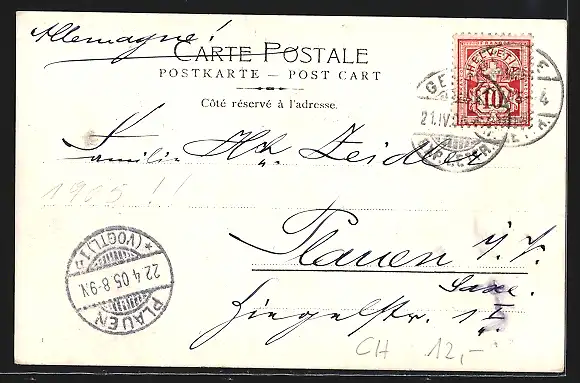 Allemagne!
CARTE POSTALE
POSTKARTE — POST CART
Côté réservé à l'adresse.
HELVETIA
10
GE
21.IV.
4
EXP. LETTR.
Familie Zeidler
1905!!
Plauen i./V.
Saxe.
Ziegelstr. 1
PLAUEN
22.4.05.8-9.V.
*(VOGTL.)1
CH 12,-